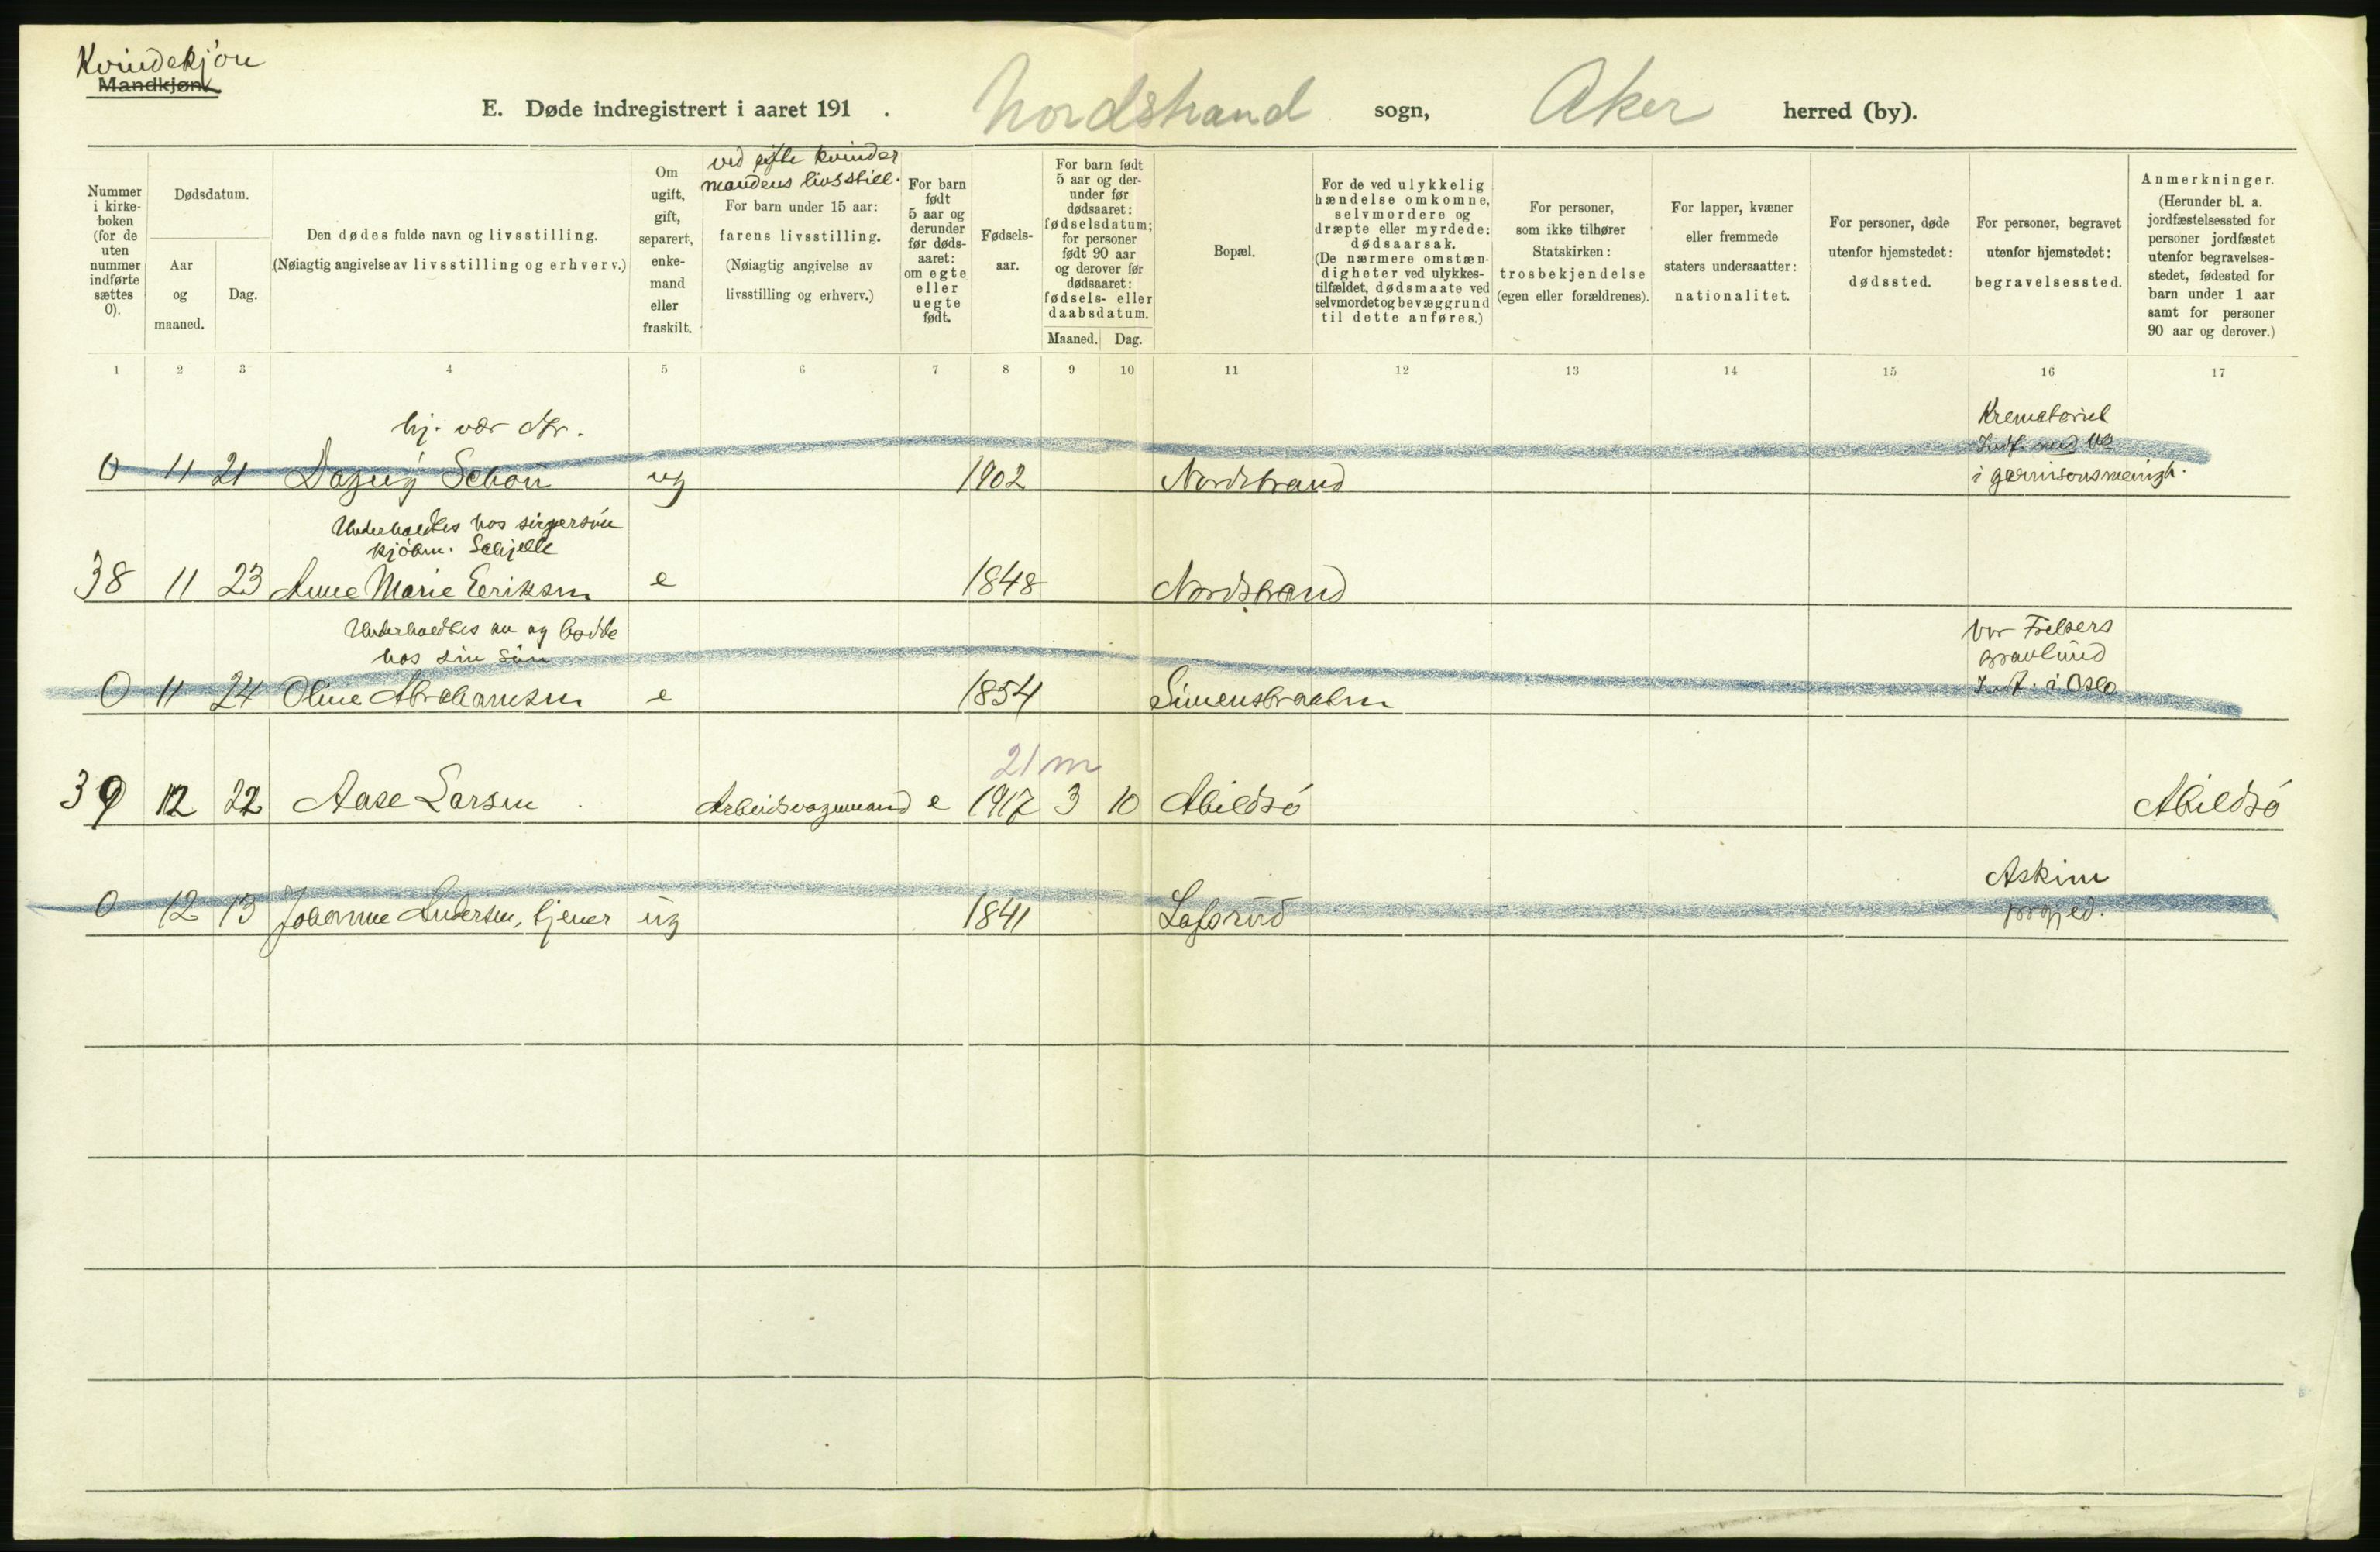 Kvindekjøn
Mandkjøn.
E. Døde indregistrert i aaret 191 . Nordstrand sogn, Aker herred (by).
Nummer i kirkeboken (for de uten nummer indførte sættes 0).
Dødsdatum.
Aar og maaned.
Dag.
Den dødes fulde navn og livsstilling.
(Nøiagtig angivelse av livsstilling og erhverv.)
Om ugift, gift, separert, enkemand eller fraskilt.
ved gifte kvinder
mandens livsstill.
For barn under 15 aar:
farens livsstilling.
(Nøiagtig angivelse av
livsstilling og erhverv.)
For barn født 5 aar og derunder før dødsaaret: om egte eller uegte født.
Fødselsaar.
For barn født 5 aar og derunder før dødsaaret: fødselsdatum; for personer født 90 aar og derover før dødsaaret: fødsels- eller daabsdatum.
Maaned. Dag.
Bopæl.
For de ved ulykkelig hændelse omkomne, selvmordere og dræpte eller myrdede: dødsaarsak. (De nærmere omstændigheter ved ulykkestilfældet, dødsmaate ved selvmordet og bevæggrund til dette anføres.)
For personer, som ikke tilhører Statskirken: trosbekjendelse (egen eller forældrenes).
For lapper, kvæner eller fremmede staters undersaatter: nationalitet.
For personer, døde utenfor hjemstedet: dødssted.
For personer, begravet utenfor hjemstedet: begravelsessted.
Anmerkninger.
(Herunder bl. a. jordfæstelsessted for personer jordfæstet utenfor begravelsesstedet, fødested for barn under 1 aar samt for personer 90 aar og derover.)
1 2 3 4 5 6 7 8 9 10 11 12 13 14 15 16 17
hj. vær. dtr.
Krematoriet
0 11 21 Dagny Schou ug 1902 Nordstrand
i garnisonsmenigh.
Underholdtes hos svigersøn
kjøbm. Schjelle
38 11 23 Anne Marie Eriksen e 1848 Nordstrand
Underholdtes av og bodde
hos sin søn
Vor Frelsers
gravlund
0 11 24 Oline Abrahamsen e 1854 Simensbraaten Jf. i Oslo
21 m
39 12 22 Aase Larsen Arbeidsvognmand e 1917 3 10 Abildsø Abildsø
Askim
0 12 13 Johanne Andersen, tjener ug 1841 Lofsrud prgjed.